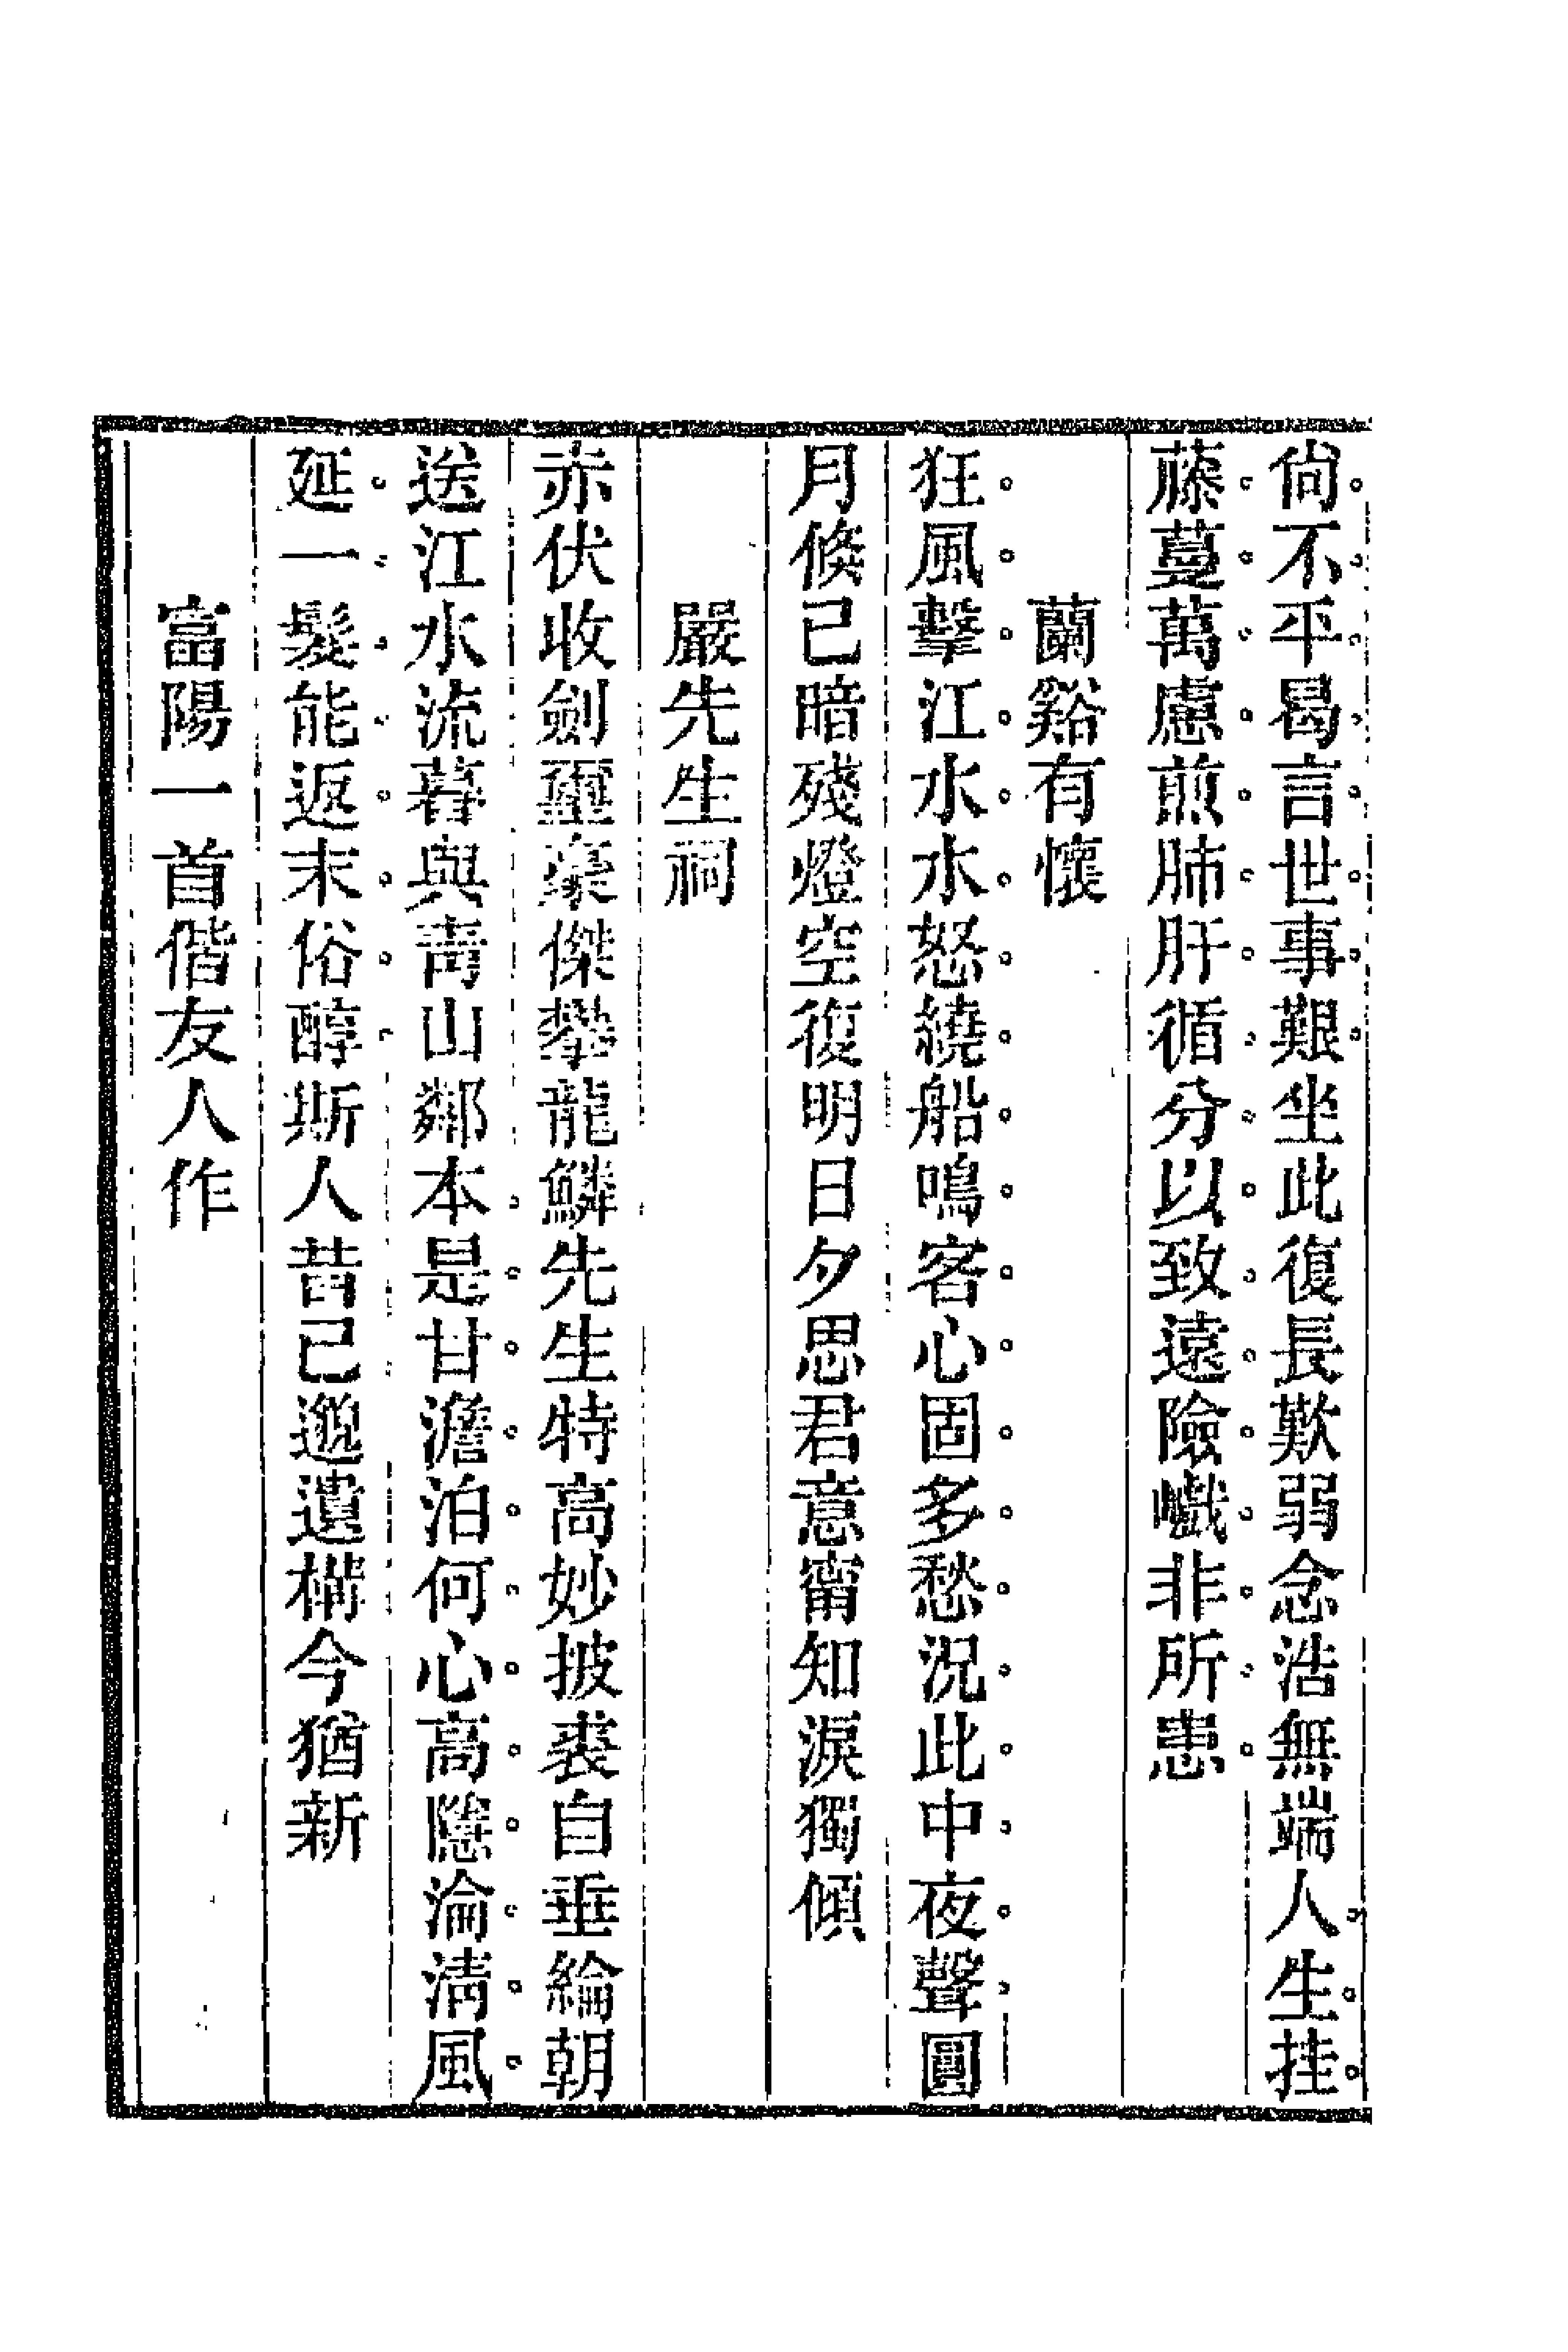 尙不平曷言世事艱坐此復長歎弱念浩無端人生挂
藤蔓萬慮煎肺肝循分以致遠險巇非所患
蘭谿有懷
狂風擊江水水怒繞船鳴客心固多愁況此中夜聲圓
月倐已暗殘燈空復明日夕思君意甯知淚獨傾
嚴先生祠
赤伏收劍璽豪傑攀龍鱗先生特高妙披裘自垂綸朝
送江水流暮與靑山鄰本是甘澹泊何心高隱淪淸風
延一髮能返末俗醇斯人昔已邈遺構今猶新
富陽一首偕友人作